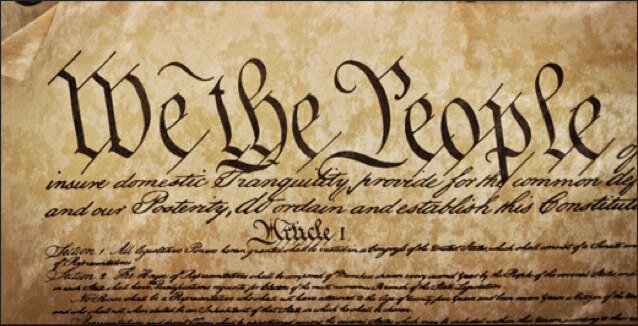 We the People
insure domestic Tranquility, provide for the common
and our Posterity, do ordain and establish this Constitut
Article I
Section 1 All legislative Powers herein granted shall be vested in a Congress of the United States, which shall consist of a Senate and
of Representatives.
Section 2 The House of Representatives shall be composed of Members chosen every second Year by the People of the several States, and
in each State shall have Qualifications requisite for Electors of the most numerous Branch of the State Legislature.
No Person shall be a Representative who shall not have attained to the Age of twenty five Years, and been seven Years a Citizen of the
and who shall not, when elected, be an Inhabitant of that State in which he shall be chosen.
Representatives and direct Taxes shall be apportioned among the several States which may be included within this Union, according to their